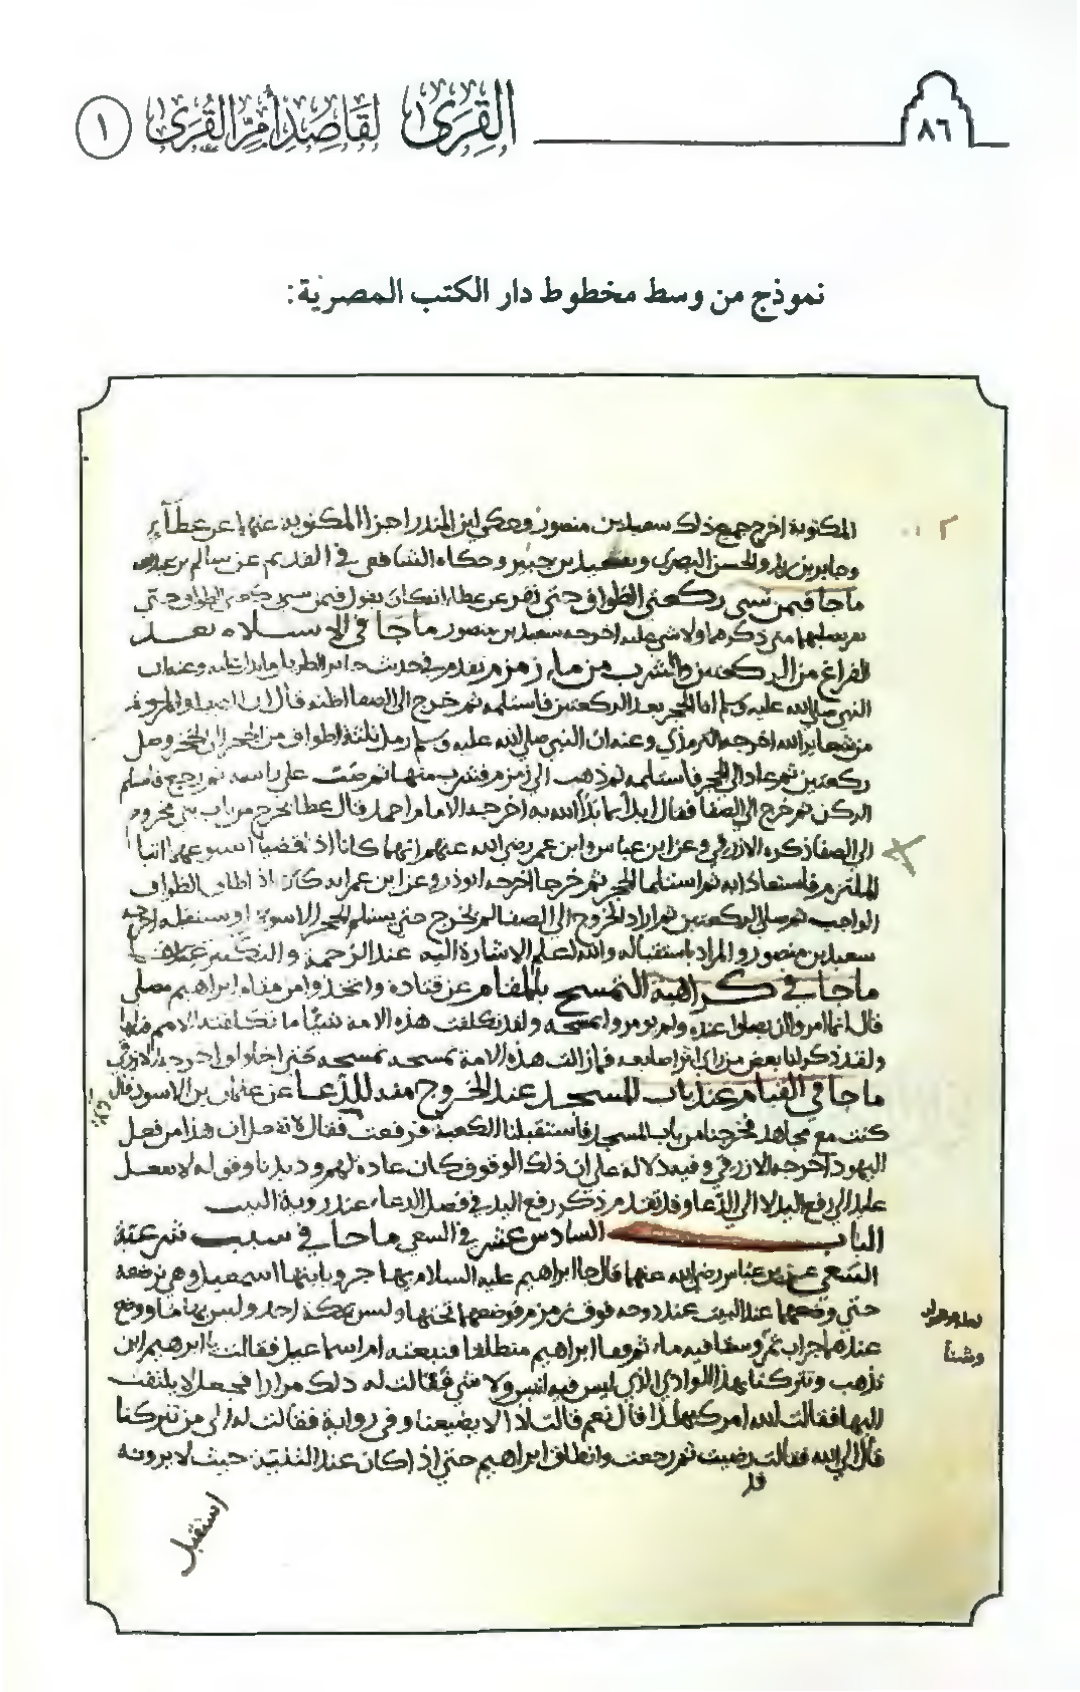 ٨٦
القِرَى لقاصد أم القُرَى
١
نموذج من وسط مخطوط دار الكتب المصرية:
المكتوبة اخرج جميع ذلك سعيد بن منصور وحكى ابن المنذر اجزا المكتوبة عنهما عن عطآء
وجابر بن زيد والحسن البصرى وسعيد بن جبير وحكاه الشافعي في القديم عن سالم بن عبدالله
ماجا فيمن نسى ركعتي الطواف حتى نفر عن عطا انه كان يقول فيمن نسى ركعتي الطواف حتى
نفر يصليهما متى ذكرهما ولا شي عليه اخرجه سعيد بن منصور ماجا في الاستلام بعد
الفراغ من الركعتين والشرب من ماء زمزم تقدم في حديث جابر الطويل
النبي صلى الله عليه وسلم اتا الحجر بعد الركعتين فاستلمه ثم خرج الى الصفا اظنه قال ان الصفا والمروة
من شعاير الله اخرجه الترمذي وعنه ان النبي صلى الله عليه وسلم رمل ثلثة اطواف من الحجر الى الحجر وصلى
ركعتين ثم عاد الى الحجر فاستلمه ثم ذهب الى زمزم فشرب منها ثم صبت على راسه ثم رجع فاستلم
الركن ثم خرج الى الصفا فقال ابدأ بما بدأ الله به اخرجه الامام احمد قال عطا يخرج من باب بنى مخزوم
الى الصفا ذكره الازرقي وعن ابن عباس وابن عمر رضي الله عنهم انهما كانا اذا قضيا اسبوعهما اتيا
الملتزم فاستعاذا به ثم استلما الحجر ثم خرجا اخرجه ابوذر وعن ابن عمر انه كان اذا طاف الطواف
الواجب ثم صلى الركعتين ثم اراد الخروج الى الصفا لم يخرج حتى يستلم الحجر الاسود او يستقبله اخرجه
سعيد بن منصور والمراد باستقباله والله اعلم الاشارة اليه عند الزحمة والتكبير
ماجا في كراهية التمسح بالمقام عن قتادة واتخذوا من مقام ابراهيم مصلى
قال انما امروا ان يصلوا عنده ولم يومروا بمسحه ولقد تكلفت هذه الامة شيئا ما تكلفته الامم قبلها
ولقد ذكر لنا بعض من راى اثر اصابعه فما زالت هذه الامة تمسحه تمسحه حتى اخلولق اخرجه الازرقي
ماجا في القيام عند باب المسجد عند الخروج منه للدعا عن عثمان بن الاسود قال
كنت مع مجاهد فخرجنا من باب المسجد فاستقبلنا الكعبة فرفعت فقال لا تفعل ان هذا من فعل
اليهود اخرجه الازرقي وفيه دلالة على ان ذلك الوقوف كان عادة لهم وديدنا وقوله لا تفعل
عايد الى رفع اليد لا الى الدعا وقد تقدم ذكر رفع اليد في فصل الدعاء عند روية البيت
الباب السادس عشر في السعي ماجا في سبب شرعية
السعي عن ابن عباس رضي الله عنهما قال جا ابراهيم عليه السلام بهاجر وبابنها اسمعيل وهي ترضعه
حتي وضعهما عند البيت عند دوحه فوق زمزم فوضعهما تحتها وليس بمكة احد وليس بها ما ووضع
عندهما جراب تمر وسقا فيه ماء ثم قفا ابراهيم منطلقا فتبعته ام اسماعيل فقالت يا ابرهيم اين
تذهب وتتركنا بهذا الوادي الذي ليس فيه انس ولا شي فقالت له ذلك مرارا فجعل لا يلتفت
اليها فقالت الله امرك بهذا قال نعم قالت اذا لا يضيعنا وفي رواية فقالت له الى من تتركنا
قال الى الله فقالت رضيت ثم رجعت وانطلق ابراهيم حتى اذا كان عند الثنية حيث لا يرونه
استقبل